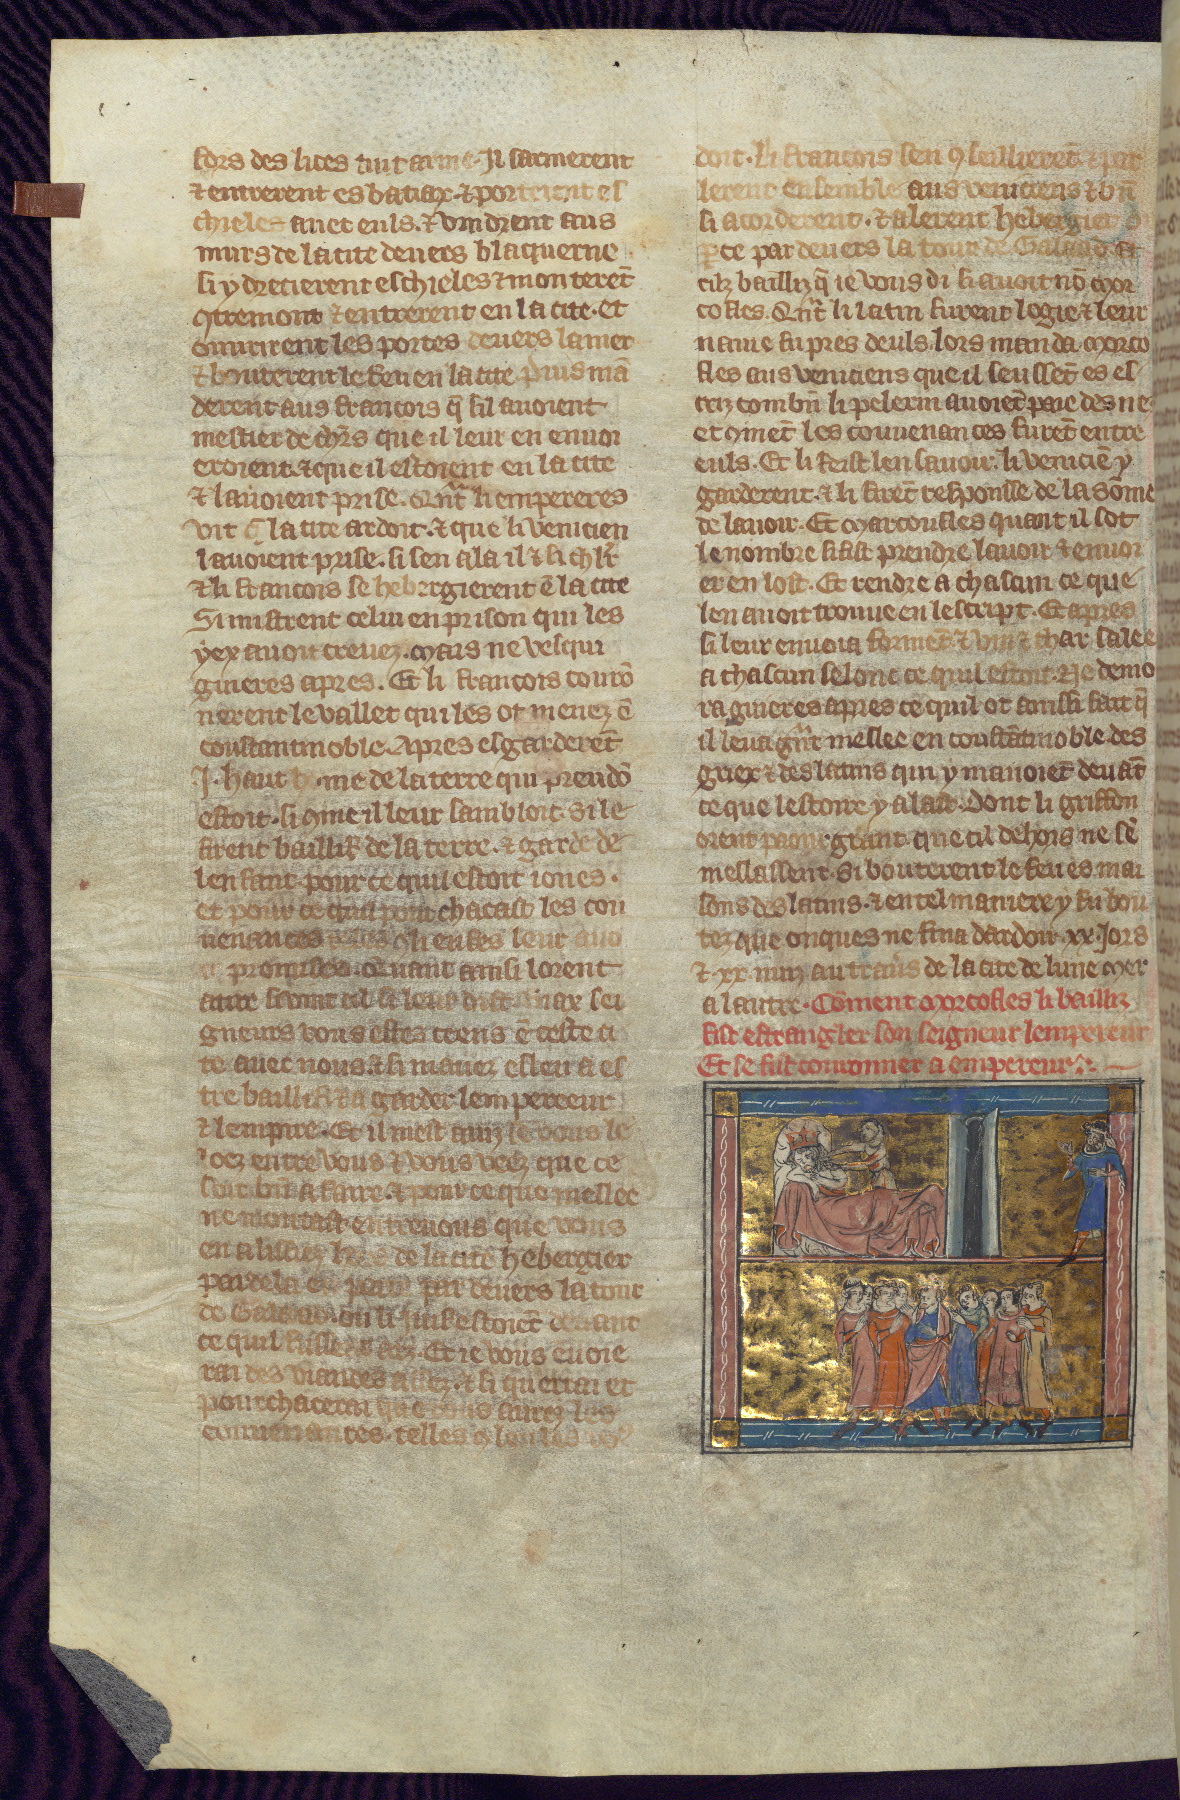 fors des lices tuit arme. Il sarmerent
⁊ entrerent es batiax ⁊ porterent es
chieles auec euls. ⁊ vindrent aus
murs de la cite deuers blaquerne
si y drecierent eschieles ⁊ monterēt
ꝯtremont ⁊ entrerent en la cite. et
ouurirent les portes deuers la mer
⁊ bouterent le feu en la cite puis mā
derent aus francois q̄ sil auoient
mestier de chrs que il leur en enuoi
eroient. ⁊ que il estoient en la cite
⁊ lauoient prise. Qn̄t li empereres
vit q̄ la cite ardoit. ⁊ que li venicien
lauoient prise. si sen ala il ⁊ si chlr
⁊ li francois se hebergierent ē la cite
Si mistrent celui en prison qui les
yex auoit creuez. Mais ne vesqui
guieres apres. Et li francois courō
nerent le vallet qui les ot menez ē
coustantinoble. Apres esgarderēt
.I. haut home de la terre qui preudō
estoit. si ꝯme il leur sambloit. Si le
firent baillif de la terre. ⁊ garde de
lenfant. pour ce quil estoit iones.
et pour ce quil pourchacast les cou
uenances que li enfes leur auo
it promises. Qn̄t ainsi lorent
atire si vint cil si leur dist. Biax sei
gneurs vous estes ceens ē ceste ci
te auec nous. ⁊ si mauez esleu a es
tre baillif ⁊ a garder lempereeur
⁊ lempire. Et il mest auiz se vous le
loez entre vous ⁊ vous veez que ce
soit bn̄ a faire. ⁊ pour ce que mellee
ne montast entre uous que vous
en alissiez hors de la cite hebergier
par dela par deuers la tour
de Galatas ou li iuif estoiēt deuant
ce quil fussent ars. Et ie vous enuoie
rai des viandes assez. ⁊ si querrai et
pourchacerai que vous aurez les
conuenances. telles ꝯ len les vous
doit. Li francois sen ꝯseillierēt ⁊ par
lerent ensemble aus veniciens ⁊ bn̄
si acorderent. ⁊ alerent hebergier
pͣce par deuers la tour de Galatas.
cilz bailliz q̄ ie vous di si auoit nō Mor
cofles. Qn̄t li latin furent logie ⁊ leur
nauie fu pres deuls. lors manda Morco
fles aus veniciens que il seussēt es es
criz combn̄ li pelerin auoiēt paie des ne
et ꝯmēt les couuenances furēt entre
euls. Et li feist len sauoir. li veniciē y
garderent. ⁊ li firēt responsse de la sōme
de lauoir. Et Marcoufles quant il sot
le nombre fist prendre lauoir ⁊ enuoi
er en lost. Et rendre a chascun ce que
len auoit trouue en lescript. Et apres
si leur enuoia formēt ⁊ vin ⁊ char salee
a chascun selonc ce quil estoit. Ne demo
ra guieres apres ce quil ot ainssi fait q̄
il leua gn̄t mellee en coustātinoble des
griex ⁊ des latins qui y manoiēt deuāt
ce que lestoire y alast. Dont li griffon
orent paour grant. que cil dehors ne sē
meslassent. Si bouterent le feu es mai
sons des latins. ⁊ en tel maniere y fu bou
tez que onques ne fina dardoir .xx. Jors
⁊ .xx. nuiz au trauers de la cite de lune mer
a lautre. Cōment Morcofles li bailliz
fist estrangler son seigneur lempereur
Et se fist couronner a empereur.